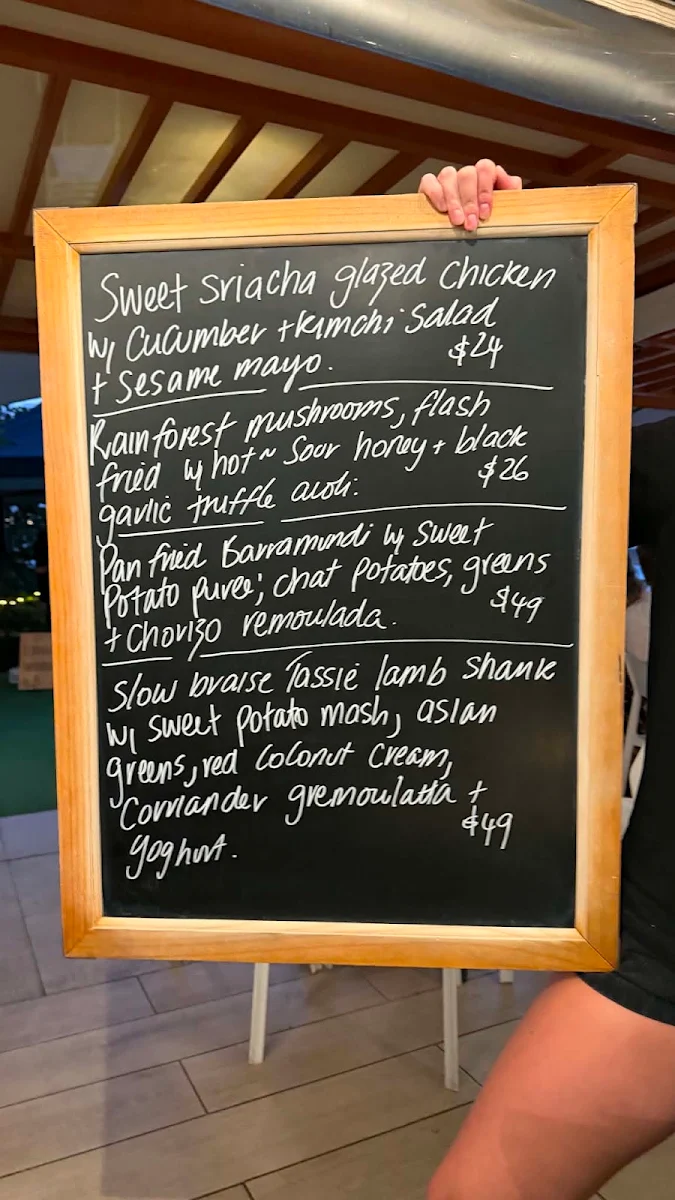 Sweet Sriacha glazed Chicken
w/ Cucumber + Kimchi Salad
+ Sesame mayo. $24
Rainforest mushrooms, flash
fried w/ hot ~ Sour honey + black
garlic truffle aioli. $26
Pan fried Barramundi w/ Sweet
Potato puree; chat potatoes, greens
+ Chorizo remoulada. $49
Slow braise Tassie lamb Shank
w/ sweet potato mash, asian
greens, red Coconut Cream,
Corriander gremoulatta +
Yoghurt. $49